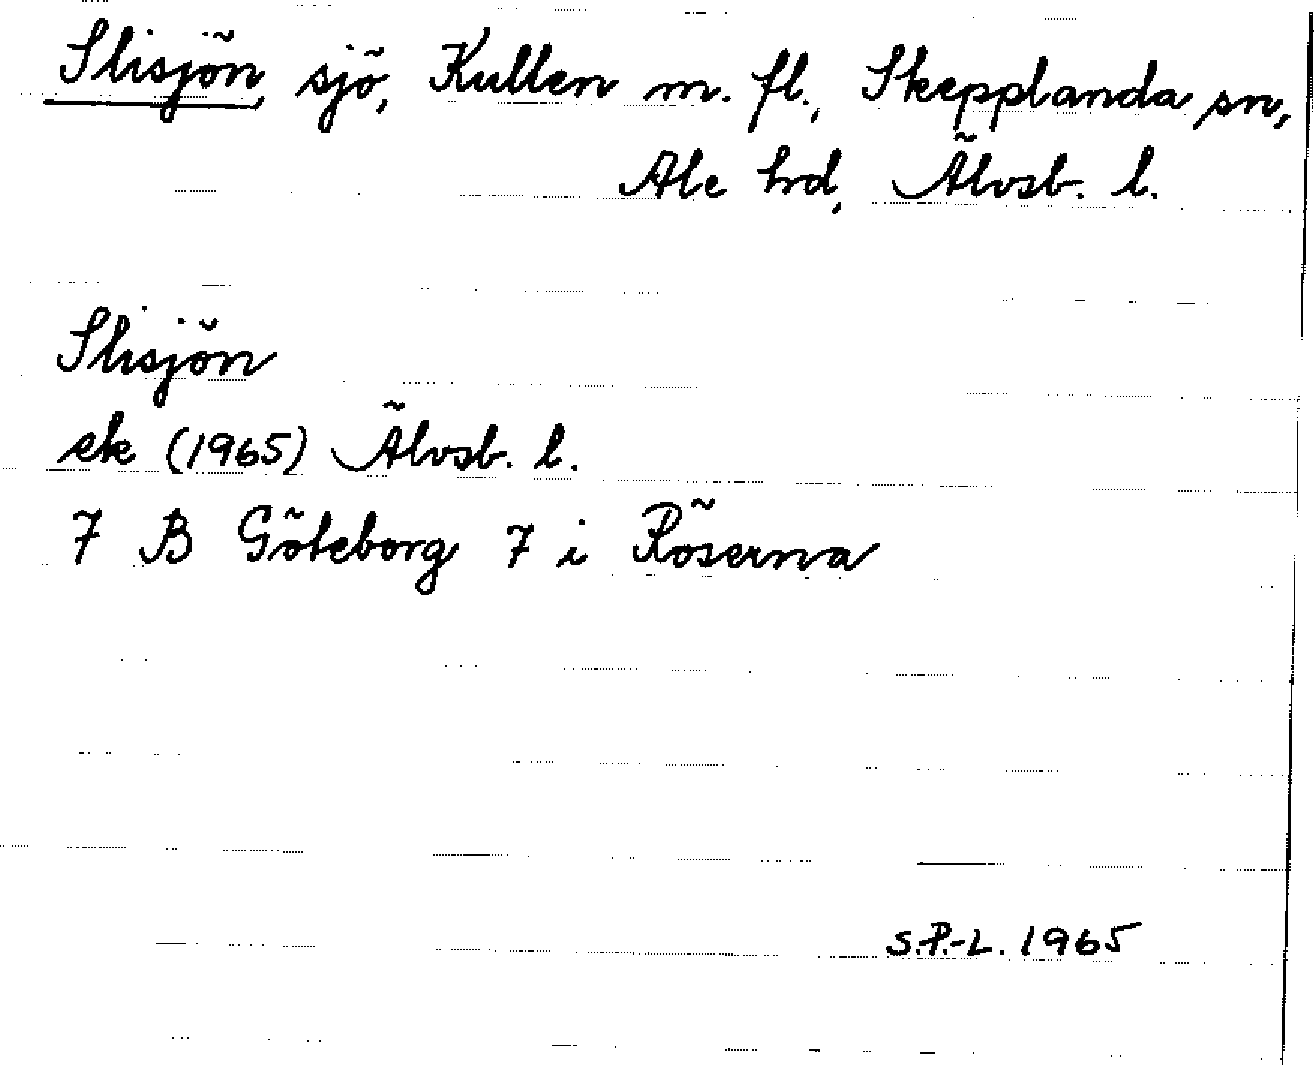 Slisjön sjö, Kullen m. fl., Skepplanda sn,
Ale hrd, Älvsb. l.
Slisjön
ek (1965) Älvsb. l.
7 B Göteborg 7 i Röserna
S.P.-L. 1965